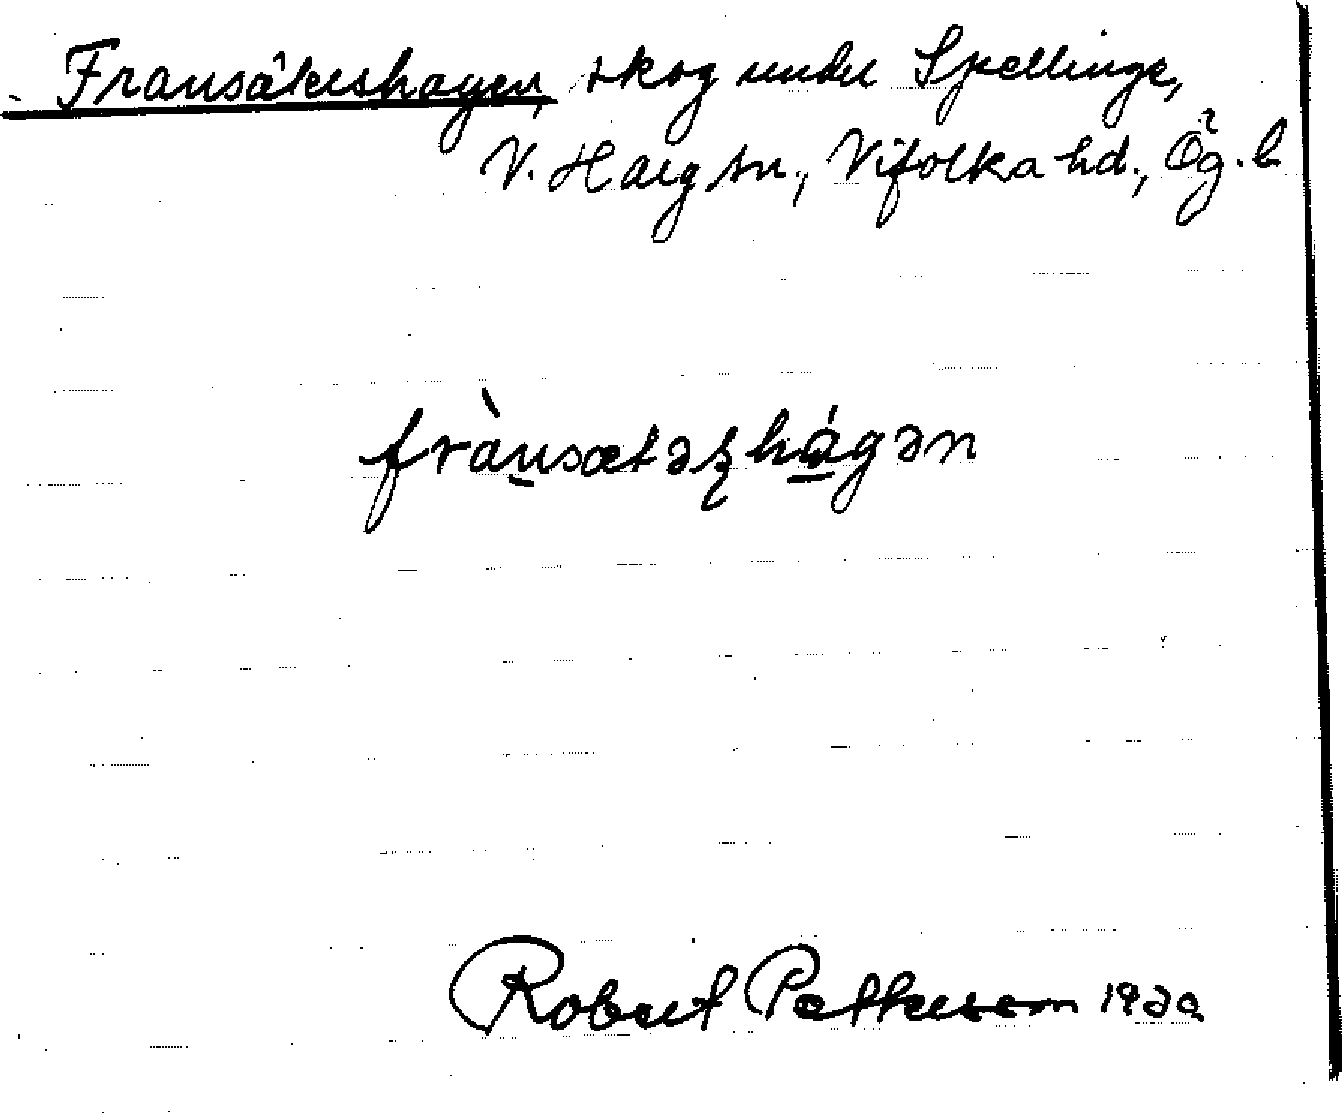 Fransätershagen, skog under Spellinge,
V. Harg sn., Vifolka hd., Ög. l
frànsætəʂhágən
Robert Pettersson 1920